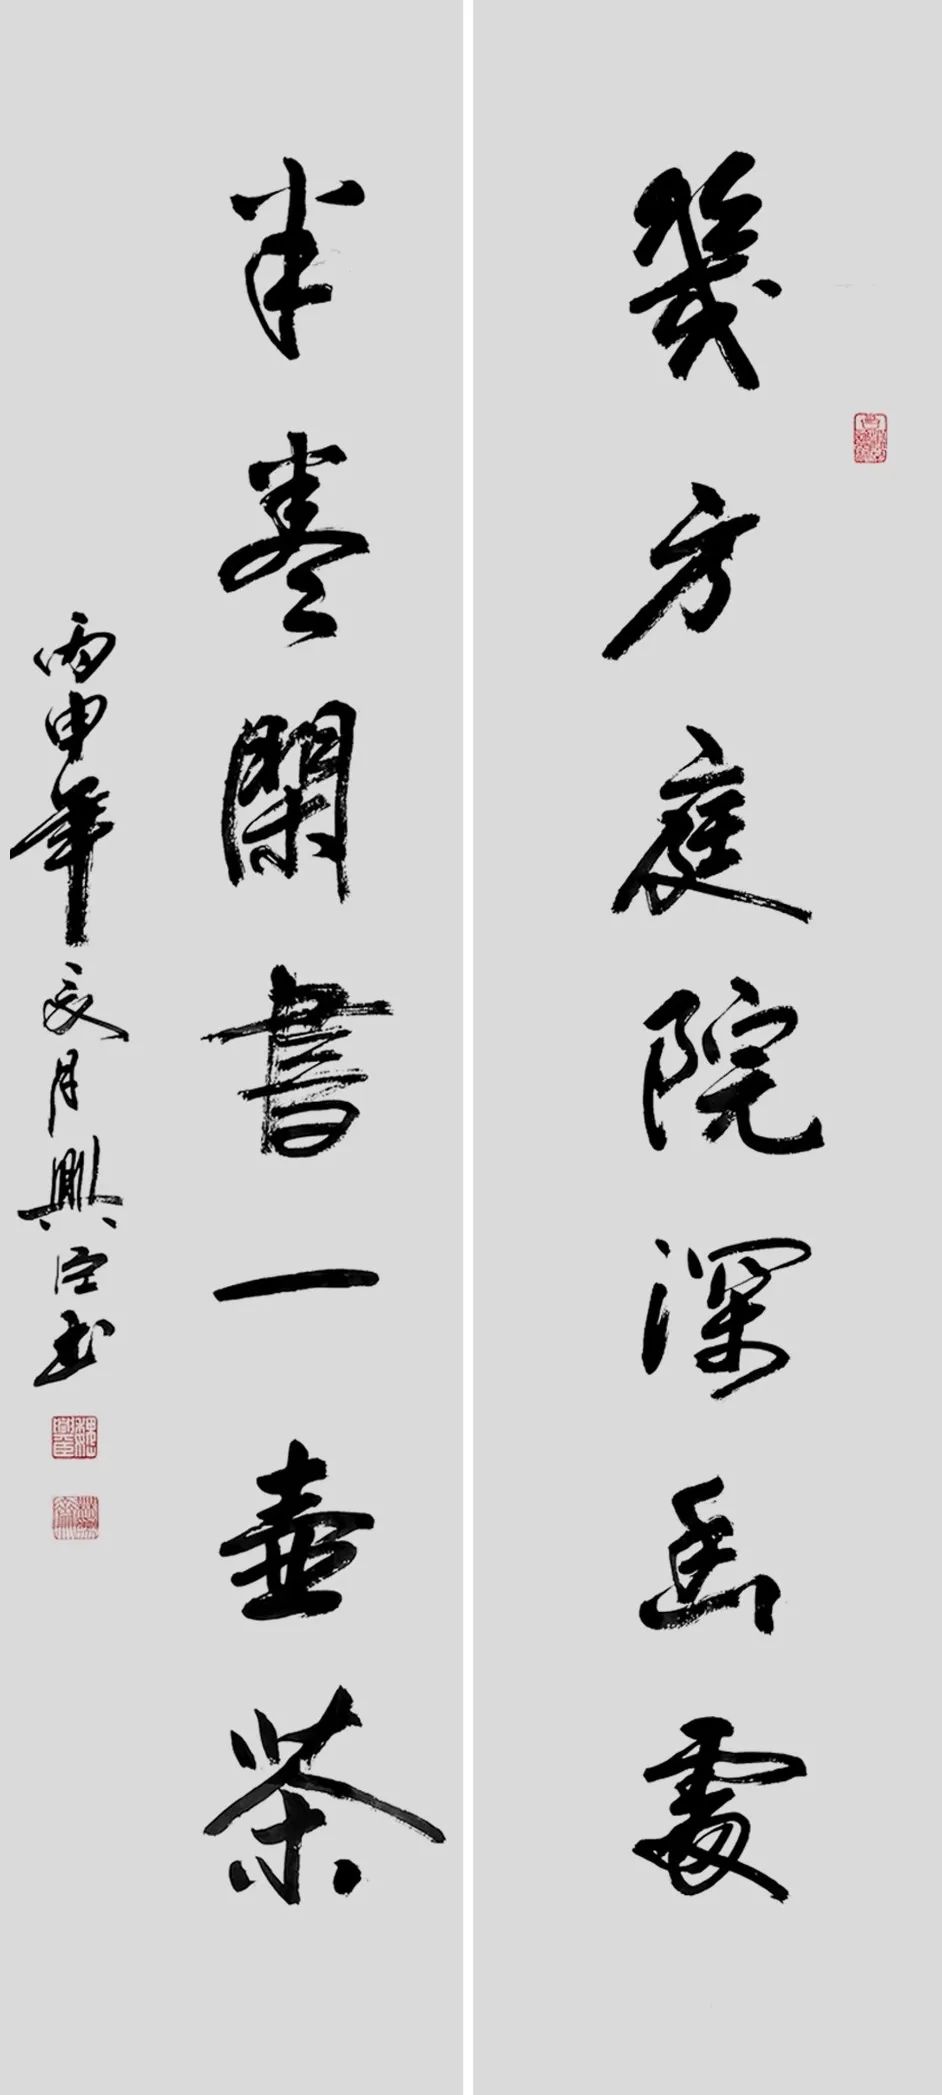 幾方庭院深幽處
半卷閑書一壺茶
丙申年文月興臣書